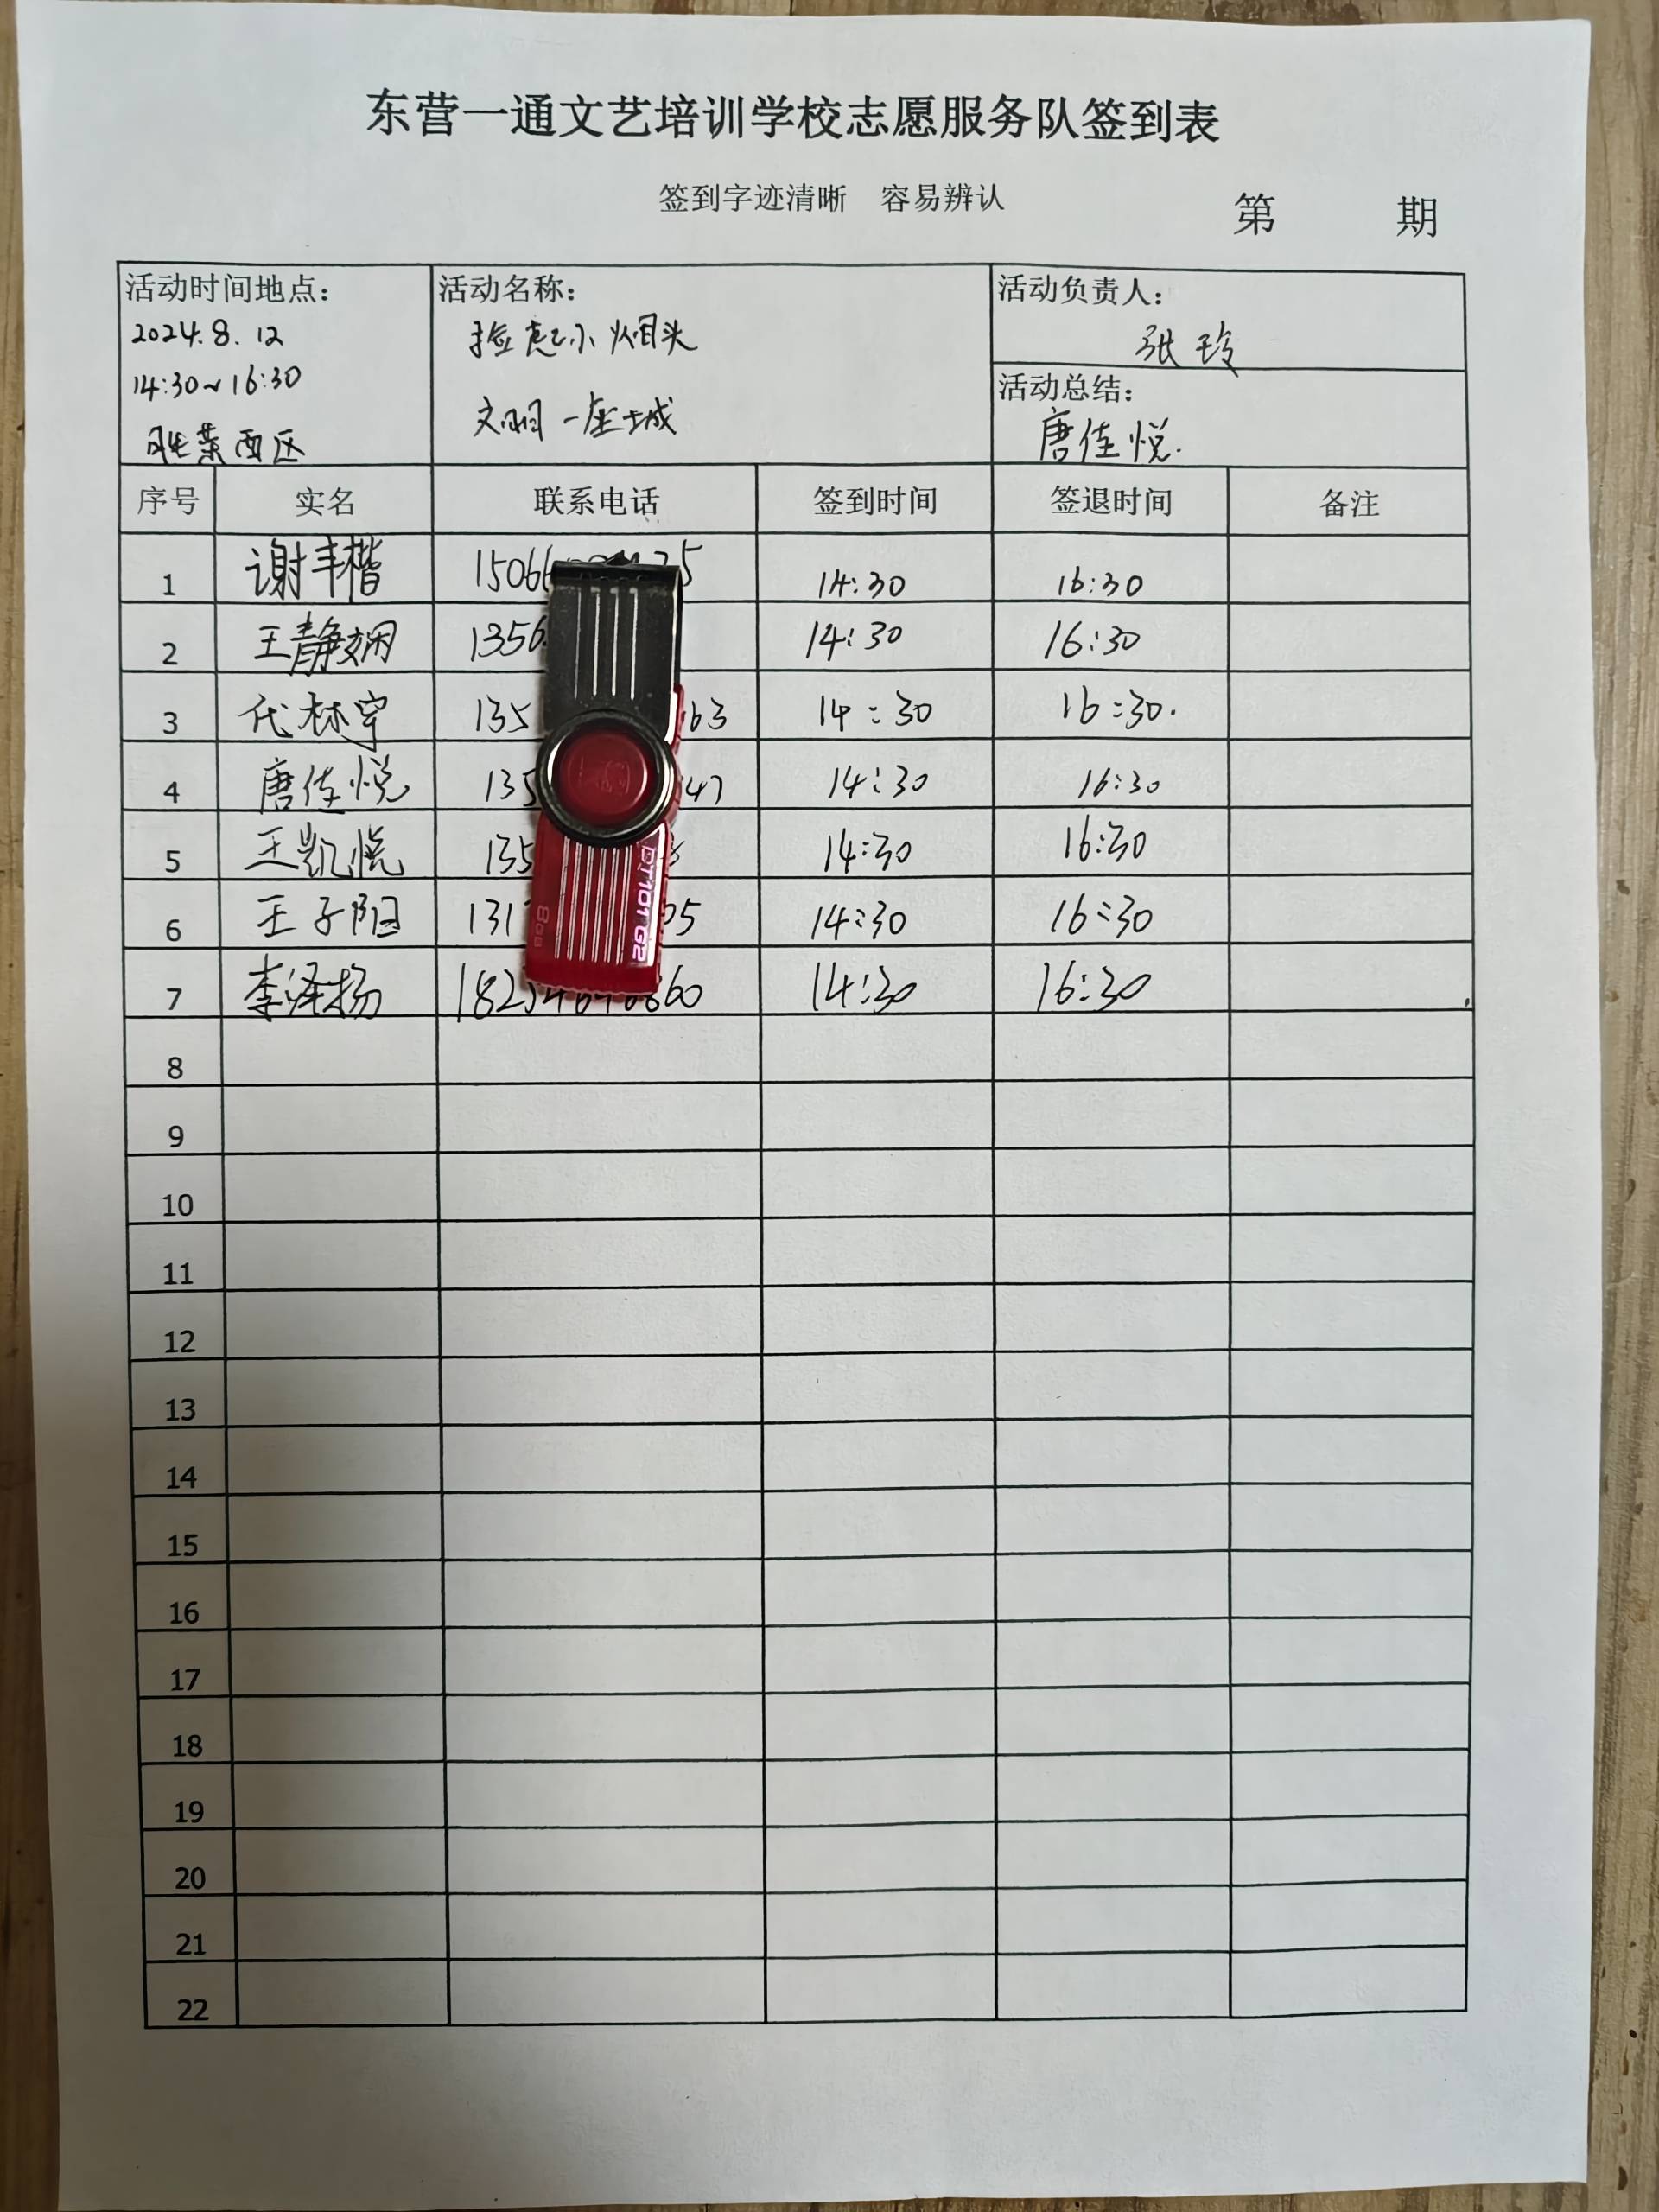 东营一通文艺培训学校志愿服务队签到表
签到字迹清晰 容易辨认
第 期
活动时间地点：
2024.8.12
14:30~16:30
胜莱西区
活动名称：
捡起小烟头
文明一座城
活动负责人：
张玲
活动总结：
唐佳悦.
序号 实名 联系电话 签到时间 签退时间 备注
1 谢丰楷 1506 5 14:30 16:30
2 王静娴 1356 14:30 16:30
3 代林宇 135 63 14:30 16:30.
4 唐佳悦 135 47 14:30 16:30
5 王凯悦 135 14:30 16:30
6 王子阳 131 05 14:30 16:30
7 李泽扬 182 60 14:30 16:30
8
9
10
11
12
13
14
15
16
17
18
19
20
21
22
DT101 G2
8GB